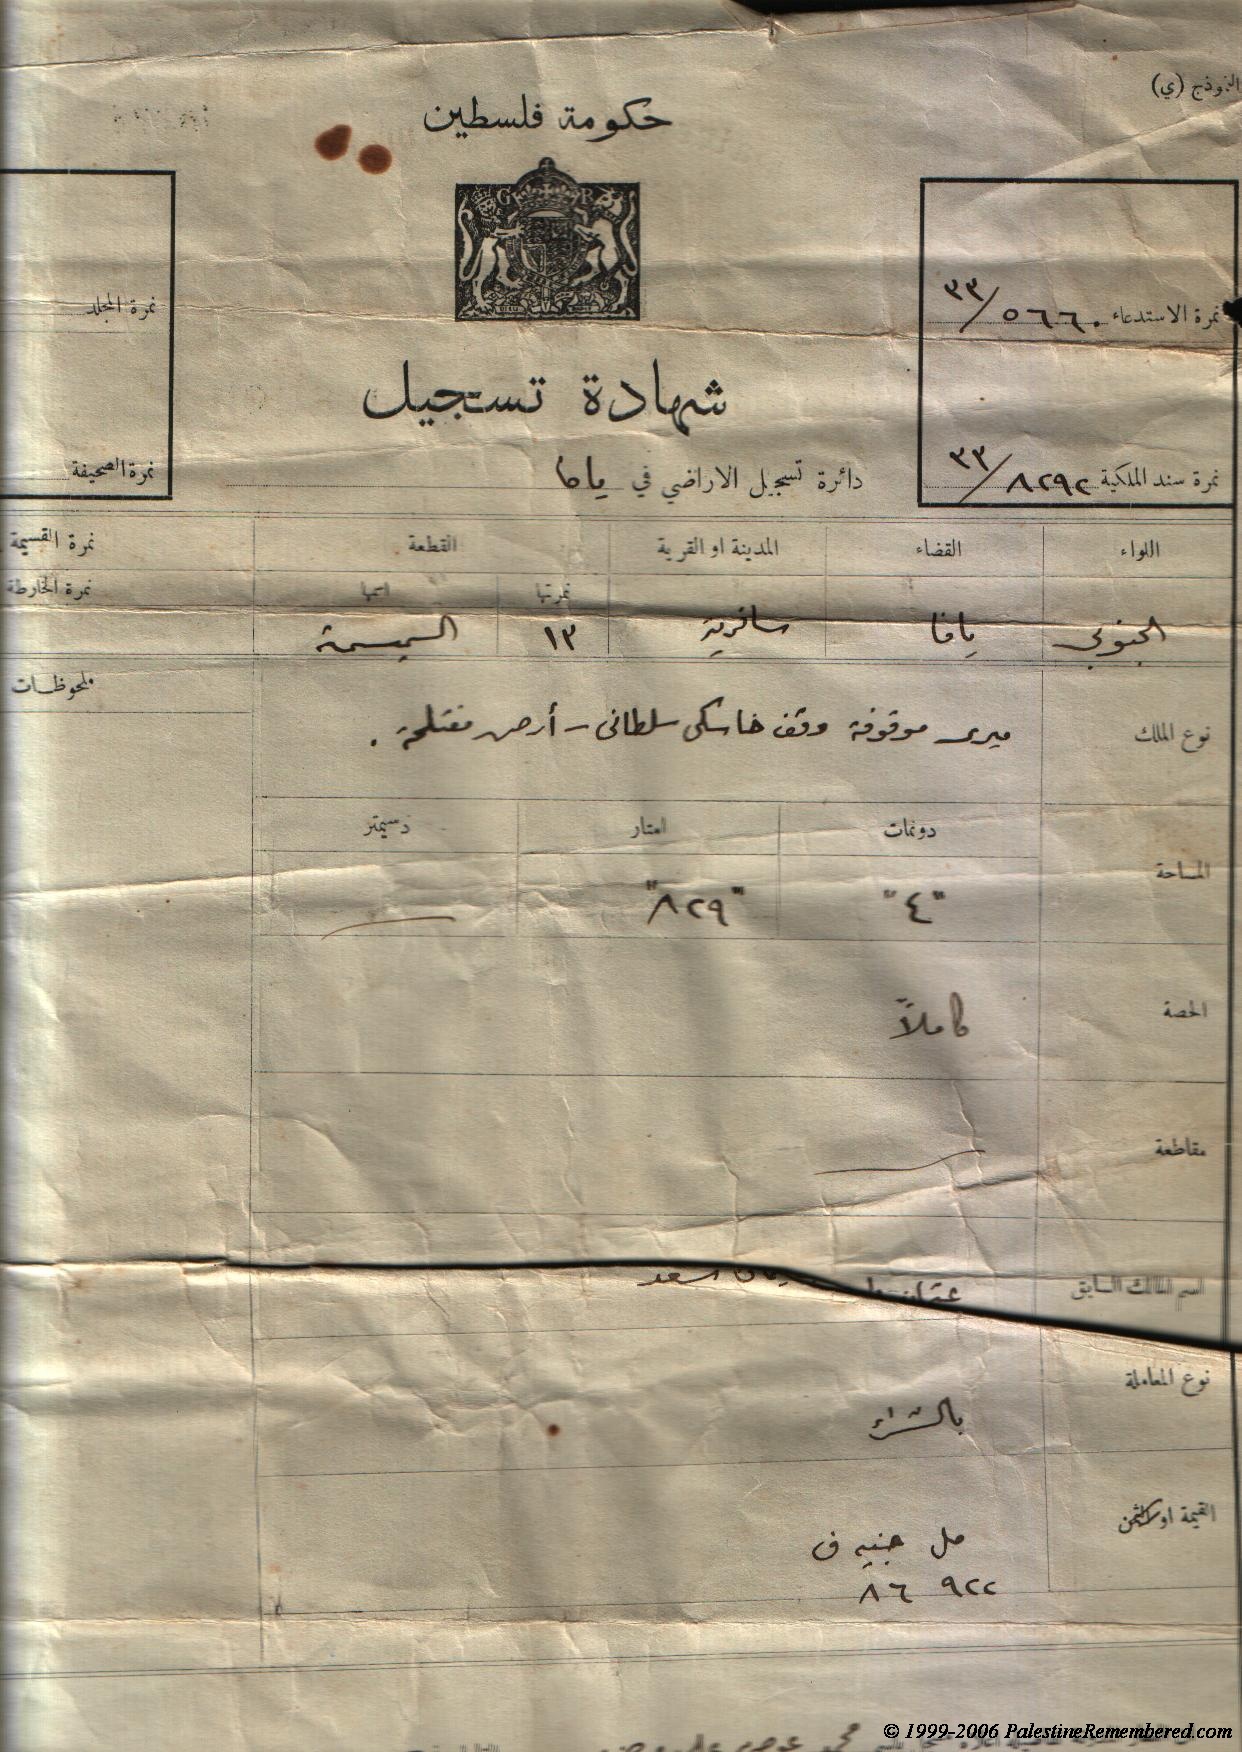 النموذج (ي)
حكومة فلسطين
G R
نمرة الاستدعاء ٥٦٦٠/٣٣
نمرة المجلد
شهادة تسجيل
نمرة سند الملكية ٨٢٩٢/٣٣
نمرة الصحيفة
دائرة تسجيل الاراضي في يافا
اللواء القضاء المدينة او القرية القطعة نمرة القسيمة
نمرتها اسمها نمرة الخارطة
الجنوبي يافا سافرية ١٣ السميسمة
ملحوظات
نوع الملك ميرى موقوفة وقف خاسكى سلطانى - أرض مفتلحة.
دونمات امتار دسيمتر
المساحة "٤" "٨٢٩"
الحصة كاملاً
مقاطعة
اسم المالك السابق عثمان السعد
نوع المعاملة بالشراء
القيمة او الثمن
مل جنيه ف
٩٢٢ ٨٦
© 1999-2006 PalestineRemembered.com